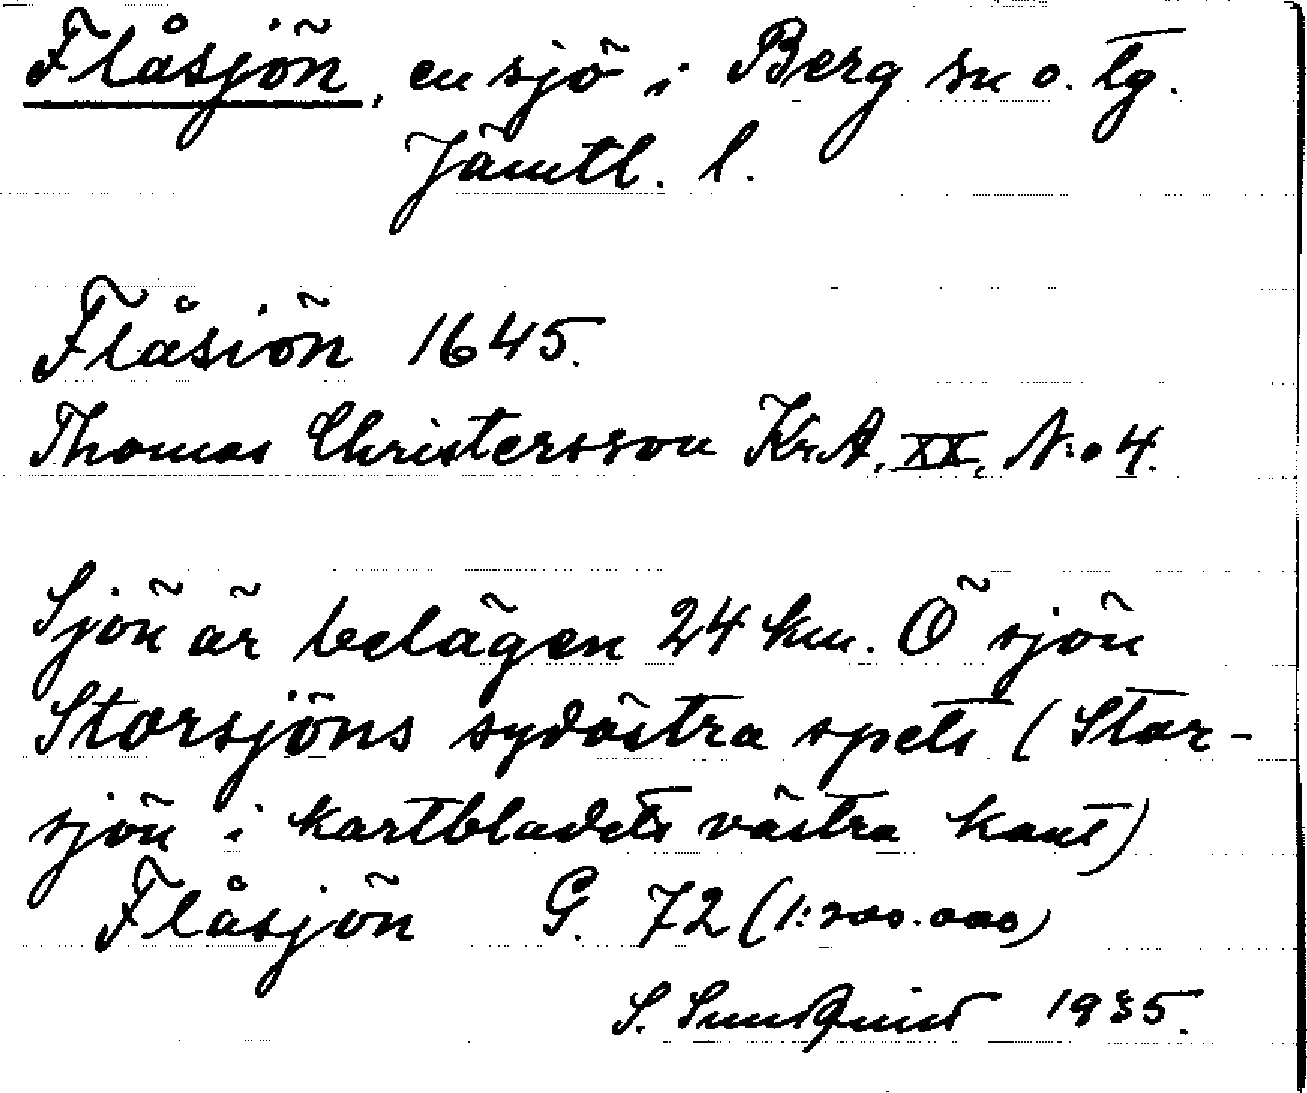 Flåsjön, en sjö i Berg sn o. tg.
Jämtl. l.
Flåsiön 1645.
Thomas Christersson Kr.A. XX, N:o 4.
Sjön är belägen 24 km. Ö sjön
Storsjöns sydöstra spets (Stor-
sjön i kartbladets västra kant)
Flåsjön G. 72 (1:200.000)
S. Sundquist 1935.